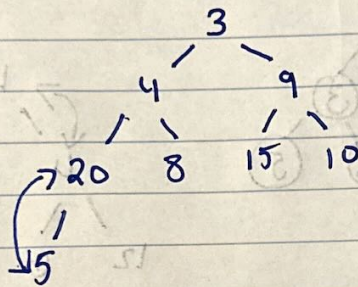 3
4 9
20 8 15 10
5